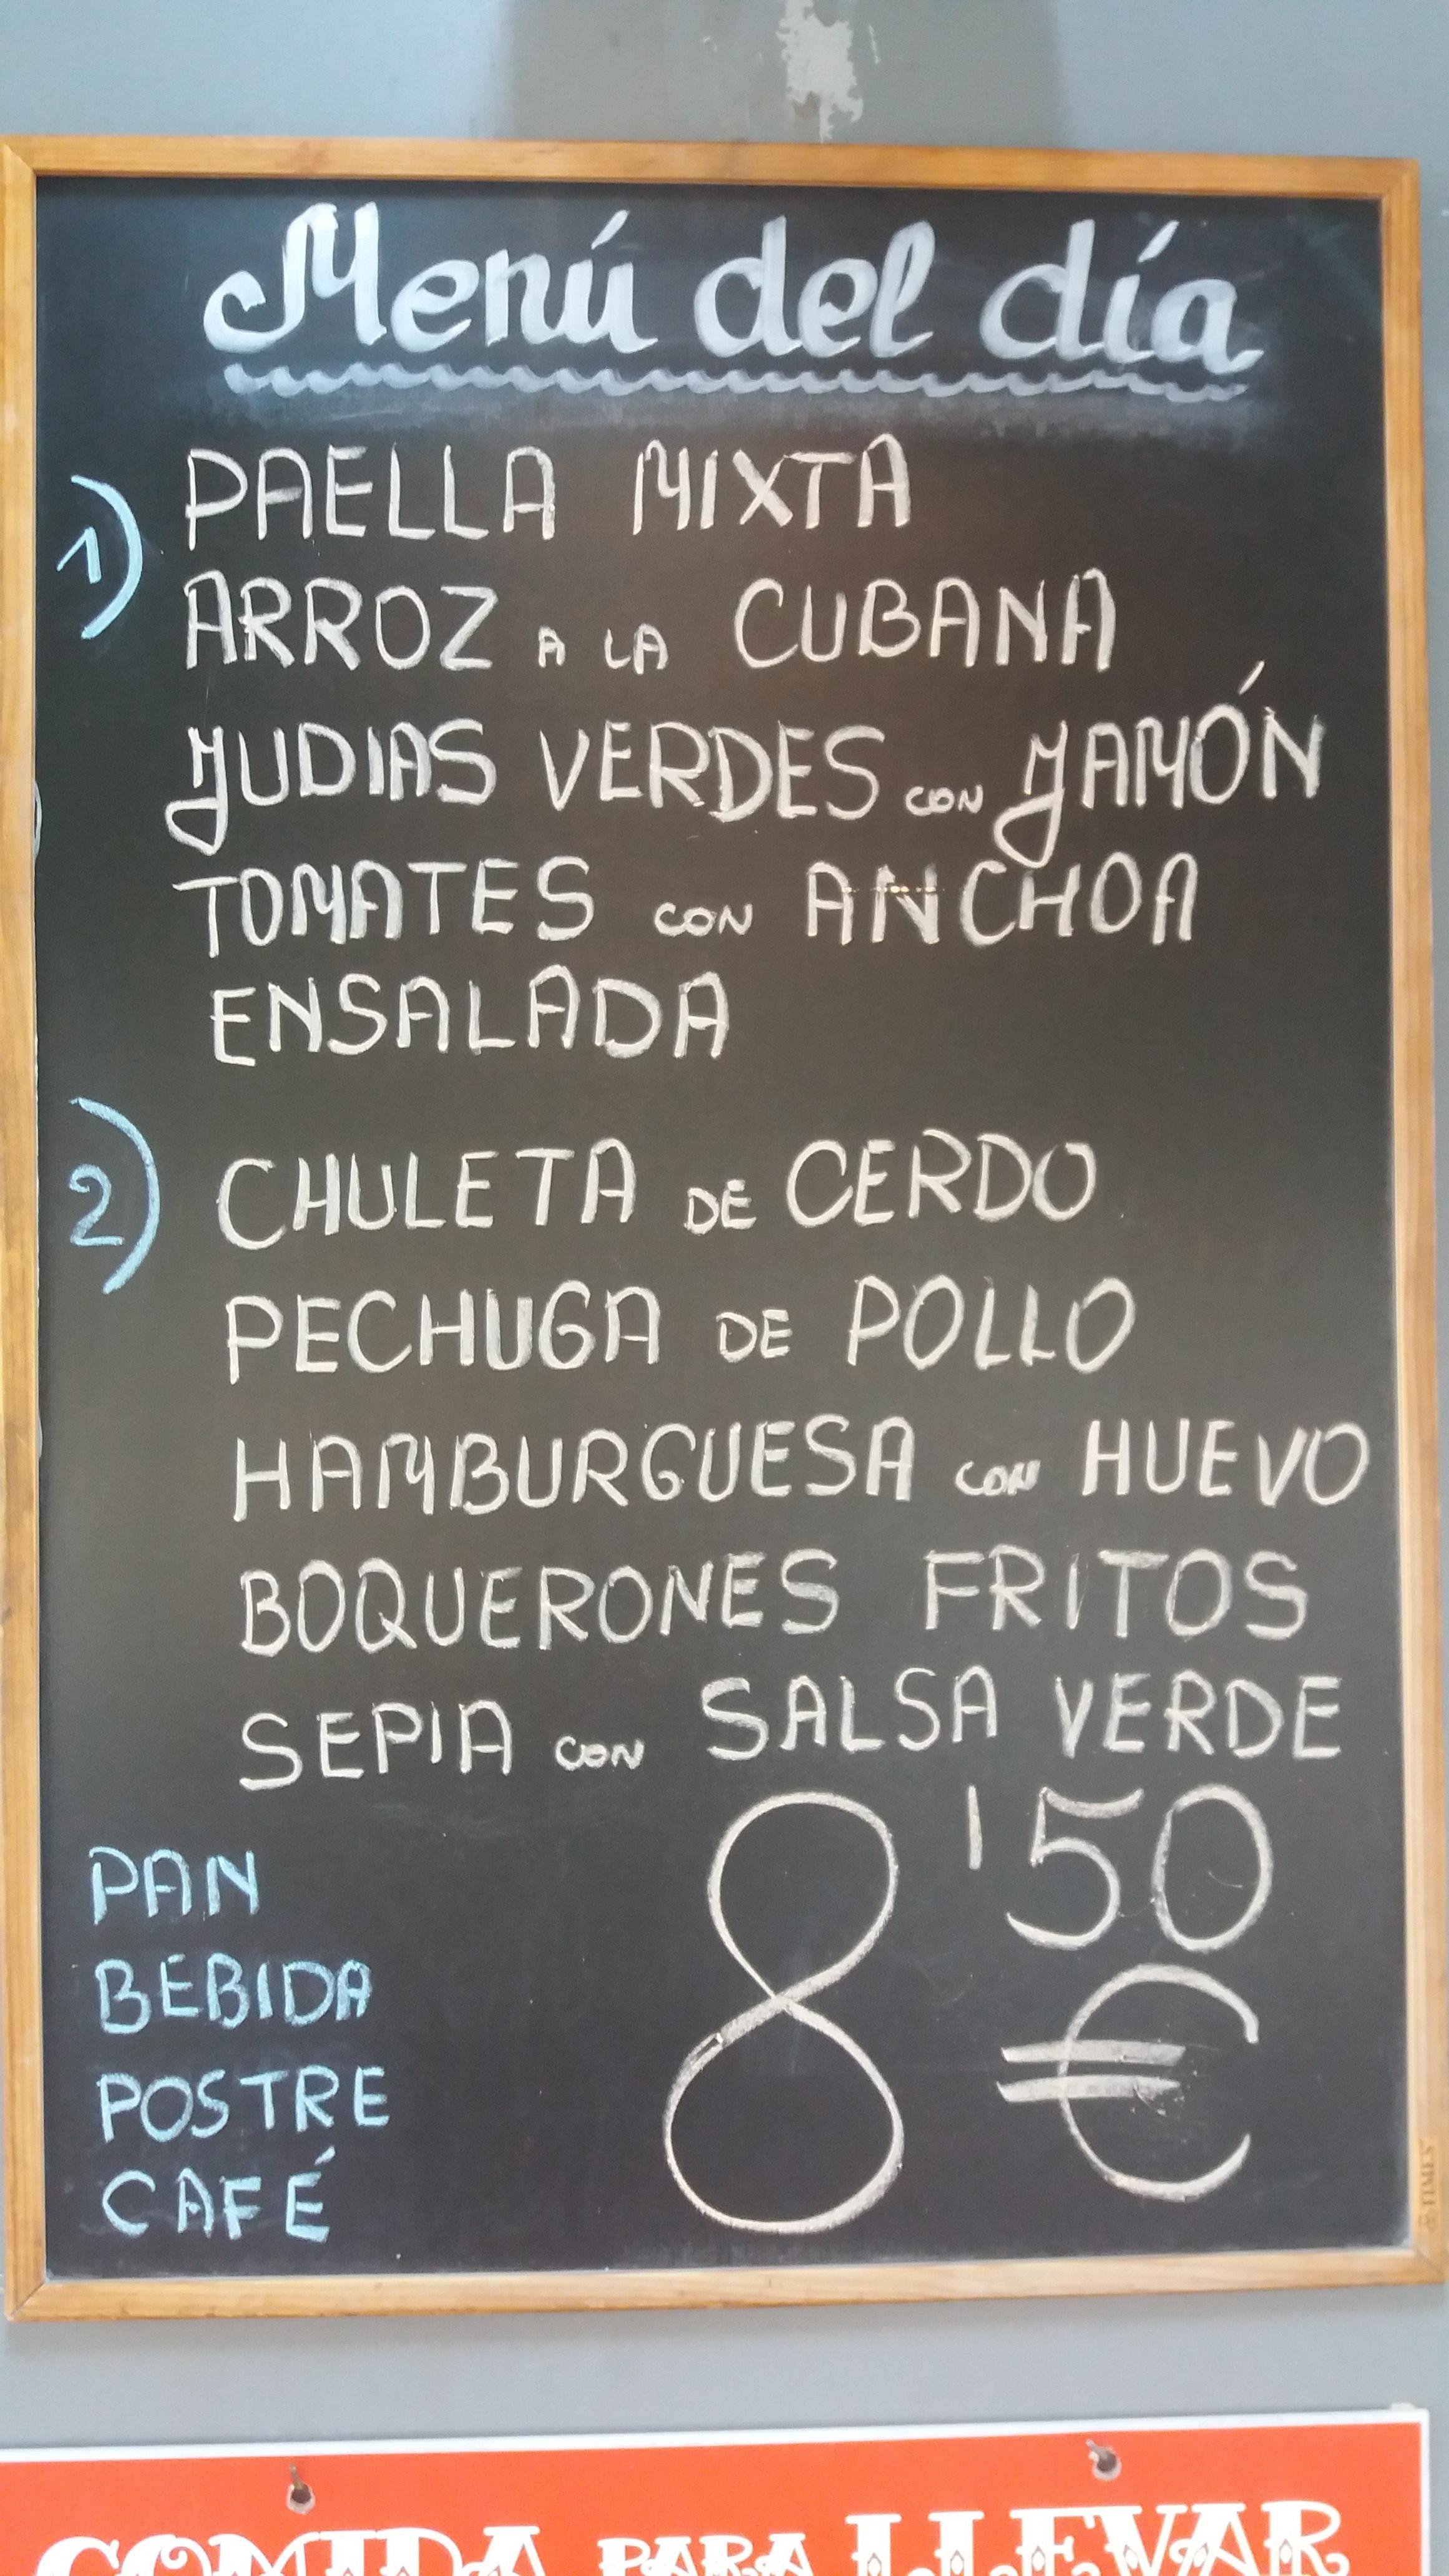 Menú del día
1) PAELLA MIXTA
ARROZ A LA CUBANA
JUDIAS VERDES CON JAMÓN
TOMATES CON ANCHOA
ENSALADA
2) CHULETA DE CERDO
PECHUGA DE POLLO
HAMBURGUESA CON HUEVO
BOQUERONES FRITOS
SEPIA CON SALSA VERDE
8'50 €
PAN
BEBIDA
POSTRE
CAFÉ
TIMES
COMIDA PARA LLEVAR